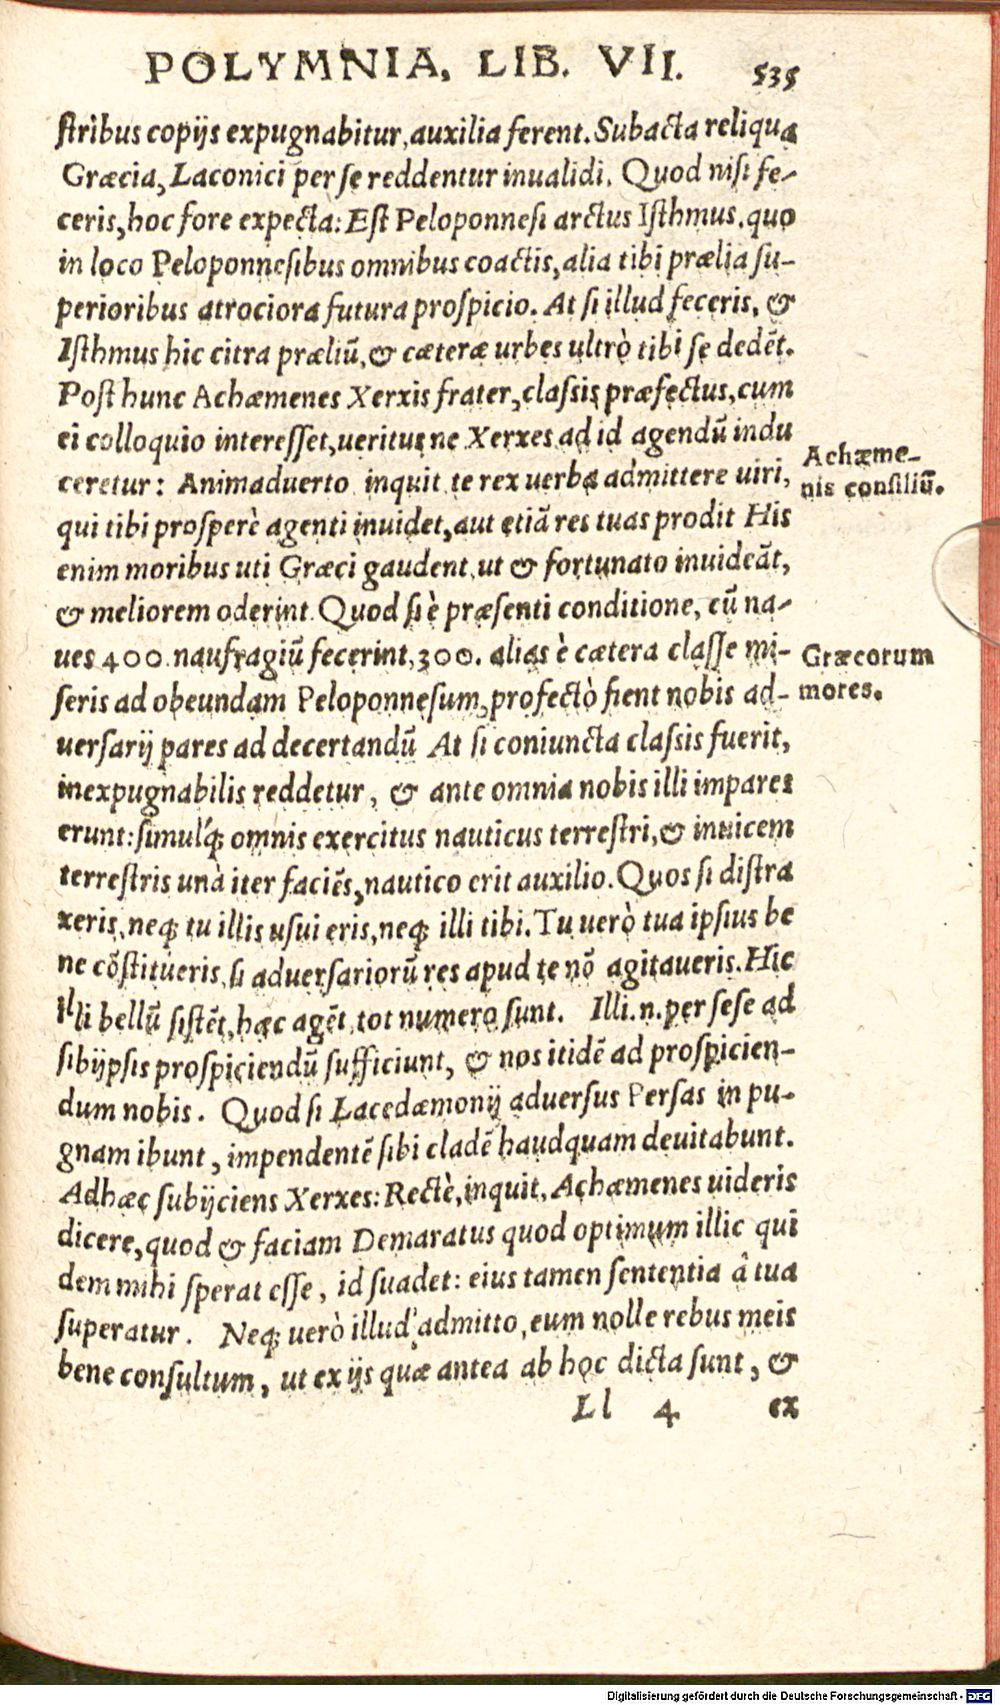 POLYMNIA, LIB. VII. 535
ſtribus copijs expugnabitur, auxilia ferent. Subacta reliqua
Græcia, Laconici per ſe reddentur inualidi. Quod niſi fe-
ceris, hoc fore expecta: Eſt Peloponneſi arctus Iſthmus, quo
in loco Peloponneſibus omnibus coactis, alia tibi prælia ſu-
perioribus atrociora futura proſpicio. At ſi illud feceris, &
Iſthmus hic citra præliū, & cæteræ urbes ultrò tibi ſe dedēt.
Poſt hunc Achæmenes Xerxis frater, claſsis præfectus, cum
ei colloquio intereſſet, ueritus ne Xerxes ad id agendū indu
ceretur: Animaduerto inquit te rex uerba admittere uiri,
qui tibi proſperè agenti inuidet, aut etiā res tuas prodit His
enim moribus uti Græci gaudent, ut & fortunato inuideāt,
& meliorem oderint. Quod ſi è præſenti conditione, cū na-
ues 400. naufragiū fecerint, 300. alias è cætera claſſe mi-
ſeris ad obeundam Peloponneſum, profectò fient nobis ad-
uerſarij pares ad decertandū At ſi coniuncta claſsis fuerit,
inexpugnabilis reddetur, & ante omnia nobis illi impares
erunt: ſimulq́; omnis exercitus nauticus terreſtri, & inuicem
terreſtris unà iter faciēs, nautico erit auxilio. Quos ſi diſtra
xeris, neq; tu illis uſui eris, neq; illi tibi. Tu uerò tua ipſius be
ne cōſtitueris, ſi aduerſariorū res apud te nō agitaueris. Hic
illi bellū ſiſtēt, hæc agēt, tot numero ſunt. Illi.n. per ſeſe ad
ſibijpſis proſpiciendū ſufficiunt, & nos itidē ad proſpicien-
dum nobis. Quod ſi Lacedæmonij aduerſus Perſas in pu-
gnam ibunt, impendentē ſibi cladē haudquam deuitabunt.
Adhæc ſubijciens Xerxes: Rectè, inquit, Achæmenes uideris
dicere, quod & faciam Demaratus quod optimum illic qui
dem mihi ſperat eſſe, id ſuadet: eius tamen ſententia â tua
ſuperatur. Neq; uerò illud admitto, eum nolle rebus meis
bene conſultum, ut ex ijs quæ antea ab hoc dicta ſunt, &
Ll 4 ex
Achæme-
nis conſiliū.
Græcorum
mores.
Digitalisierung gefördert durch die Deutsche Forschungsgemeinschaft - DFG